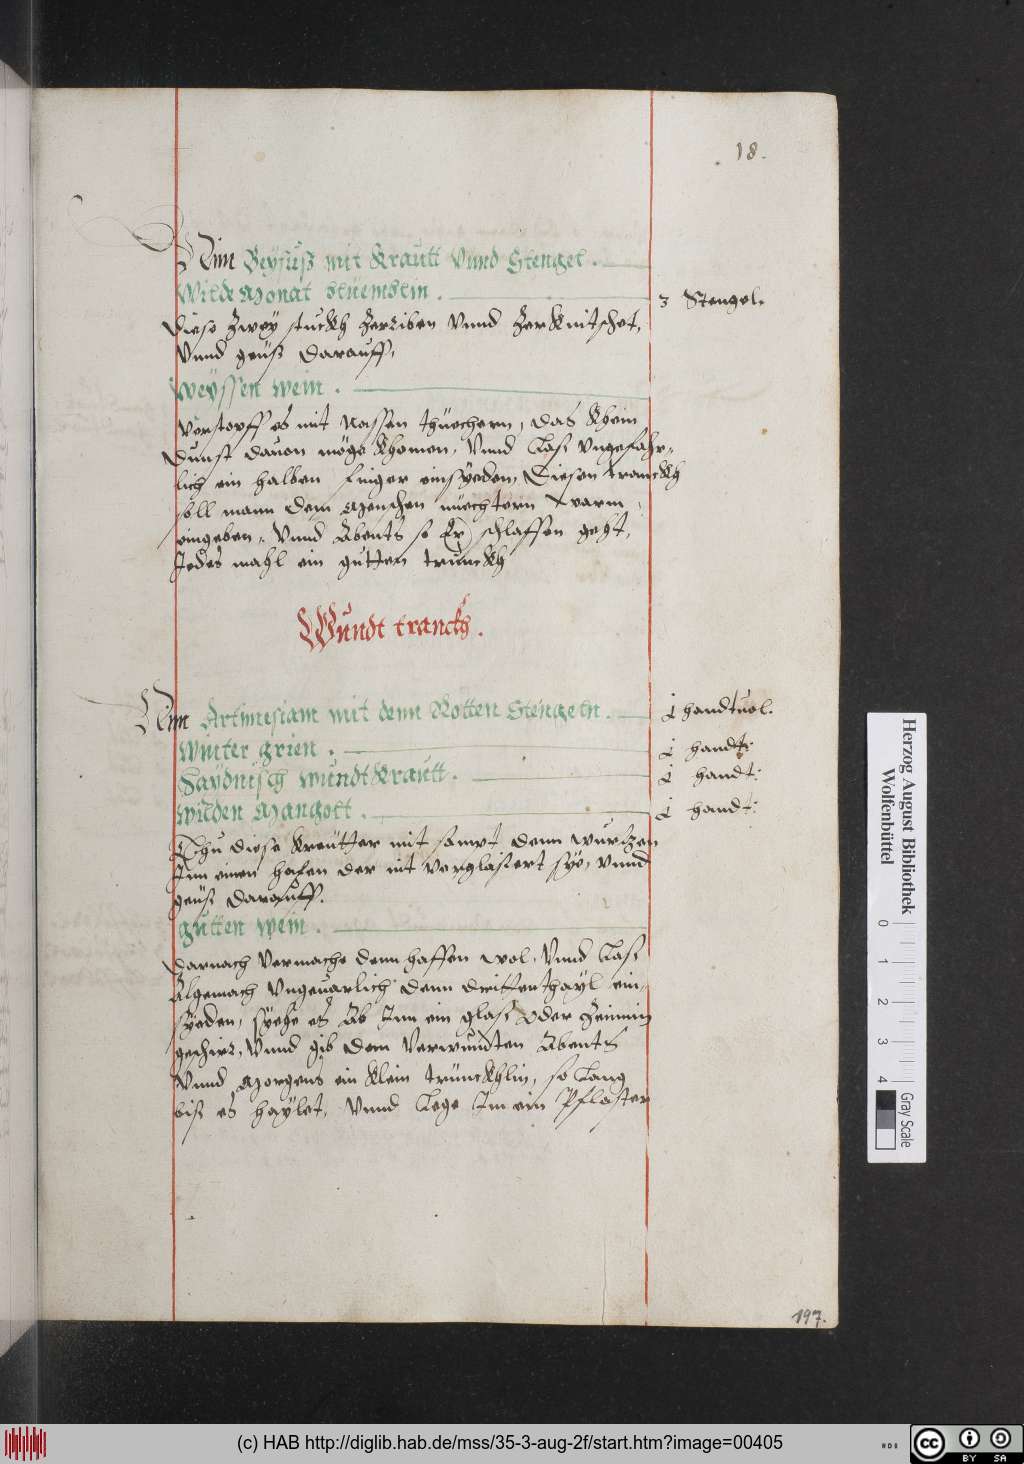 18.
Nim Beyfuß mit Krautt Vnnd Stengel.
Wilde Monat Stüemblin. 3 Stengel.
Diese Zwey stuckh Zerriben Vnnd Zerknitschet,
Vnnd geüß darauff,
Weyssen wein.
Verstopff es mit Nassen thüechern, das khein
dunst dauon möge khomen, Vnnd Lass Vngefahr-
lich ein halben finger einsyeden, Diesen tranckh
soll mann dem Menschen nüechtern warm
eingeben, Vnnd Abents so Er schlaffen geht,
Jedes mahl ein gutten trunckh
Wundt tranckh.
Nim Artimesiam mit denn Rotten Stengeln. j handtuol.
Winter grien. j handt:
Haydnisch wundtkrautt. j handt:
Wilden Mangolt. j handt:
Thu diese kreütter mit sampt denn wurtzen
Inn einen hafen der nit Verglasiert sye, Vnnd
geüß darauff.
gutten wein.
Darnach Vermache denn haffen wol, Vnnd Lass
Algemach Vngeuarlich denn dritten thayl ein-
syeden, syehe es Ab Inn ein glass oder Zeinnin
geschirr, Vnnd gib dem Verwundten Abents
Vnnd Morgens ein klein trünckhlin, so lang
biß es haylet, Vnnd Lege Im ein Pflaster
197.
Herzog August Bibliothek
Wolfenbüttel
0 1 2 3 4
Gray Scale
(c) HAB http://diglib.hab.de/mss/35-3-aug-2f/start.htm?image=00405
cc BY SA